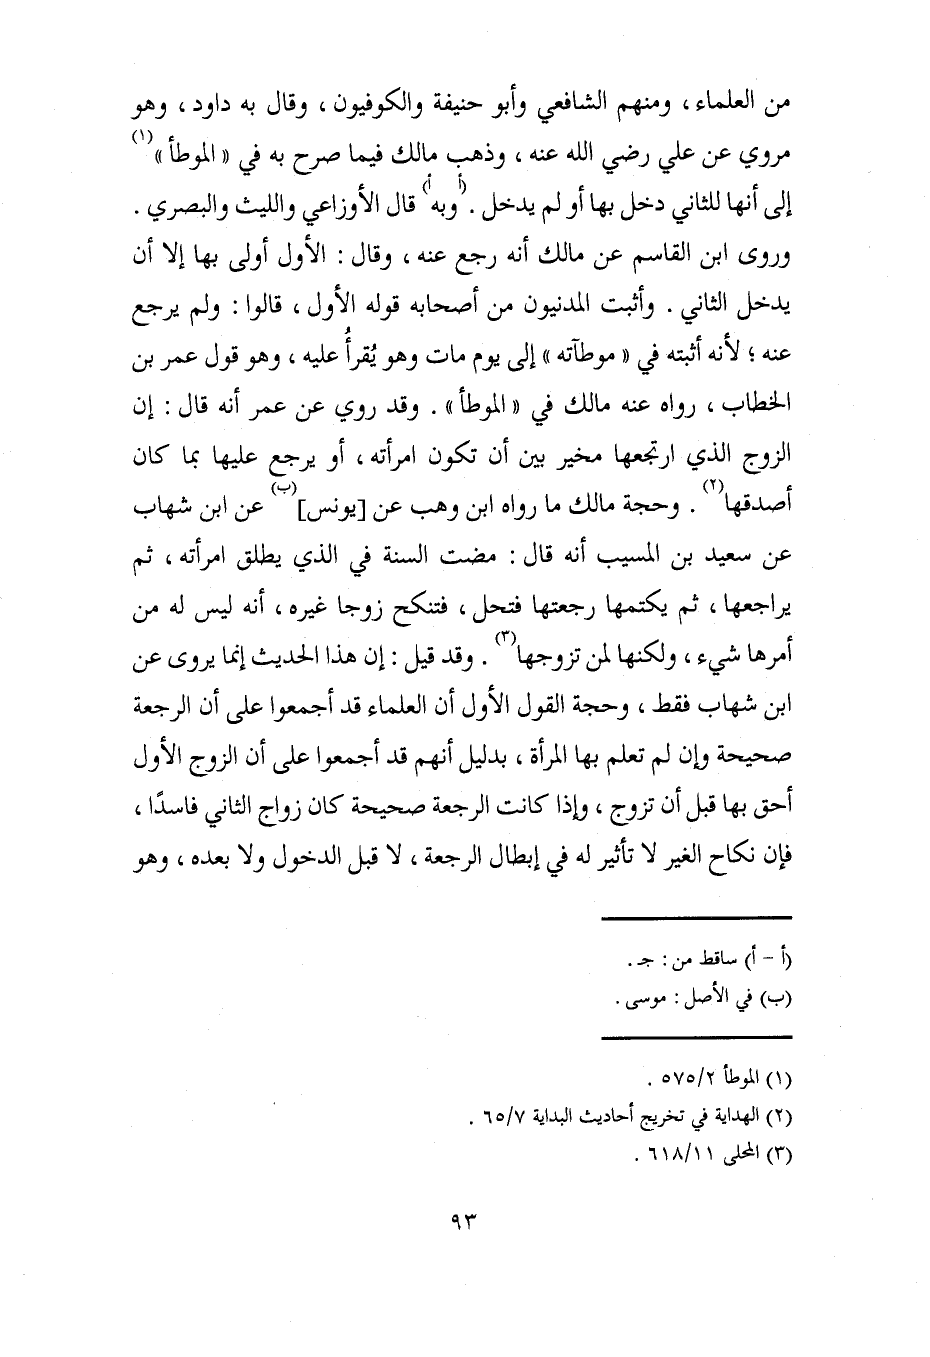 من العلماء ، ومنهم الشافعي وأبو حنيفة والكوفيون ، وقال به داود ، وهو
مروي عن علي رضي الله عنه ، وذهب مالك فيما صرح به في « الموطأ »(١)
إلى أنها للثاني دخل بها أو لم يدخل . (أوبه أ) قال الأوزاعي والليث والبصري .
وروى ابن القاسم عن مالك أنه رجع عنه ، وقال : الأول أولى بها إلا أن
يدخل الثاني . وأثبت المدنيون من أصحابه قوله الأول ، قالوا : ولم يرجع
عنه ؛ لأنه أثبته في « موطآته » إلى يوم مات وهو يُقرأُ عليه ، وهو قول عمر بن
الخطاب ، رواه عنه مالك في « الموطأ » . وقد روي عن عمر أنه قال : إن
الزوج الذي ارتجعها مخير بين أن تكون امرأته ، أو يرجع عليها بما كان
أصدقها(٢) . وحجة مالك ما رواه ابن وهب عن [يونس](ب) عن ابن شهاب
عن سعيد بن المسيب أنه قال : مضت السنة في الذي يطلق امرأته ، ثم
يراجعها ، ثم يكتمها رجعتها فتحل ، فتنكح زوجا غيره ، أنه ليس له من
أمرها شيء ، ولكنها لمن تزوجها(٣) . وقد قيل : إن هذا الحديث إنما يروى عن
ابن شهاب فقط ، وحجة القول الأول أن العلماء قد أجمعوا على أن الرجعة
صحيحة وإن لم تعلم بها المرأة ، بدليل أنهم قد أجمعوا على أن الزوج الأول
أحق بها قبل أن تزوج ، وإذا كانت الرجعة صحيحة كان زواج الثاني فاسدًا ،
فإن نكاح الغير لا تأثير له في إبطال الرجعة ، لا قبل الدخول ولا بعده ، وهو
(أ - أ) ساقط من : جـ .
(ب) في الأصل : موسى .
(١) الموطأ ٢/ ٥٧٥ .
(٢) الهداية في تخريج أحاديث البداية ٧/ ٦٥ .
(٣) المحلى ١١/ ٦١٨ .
٩٣